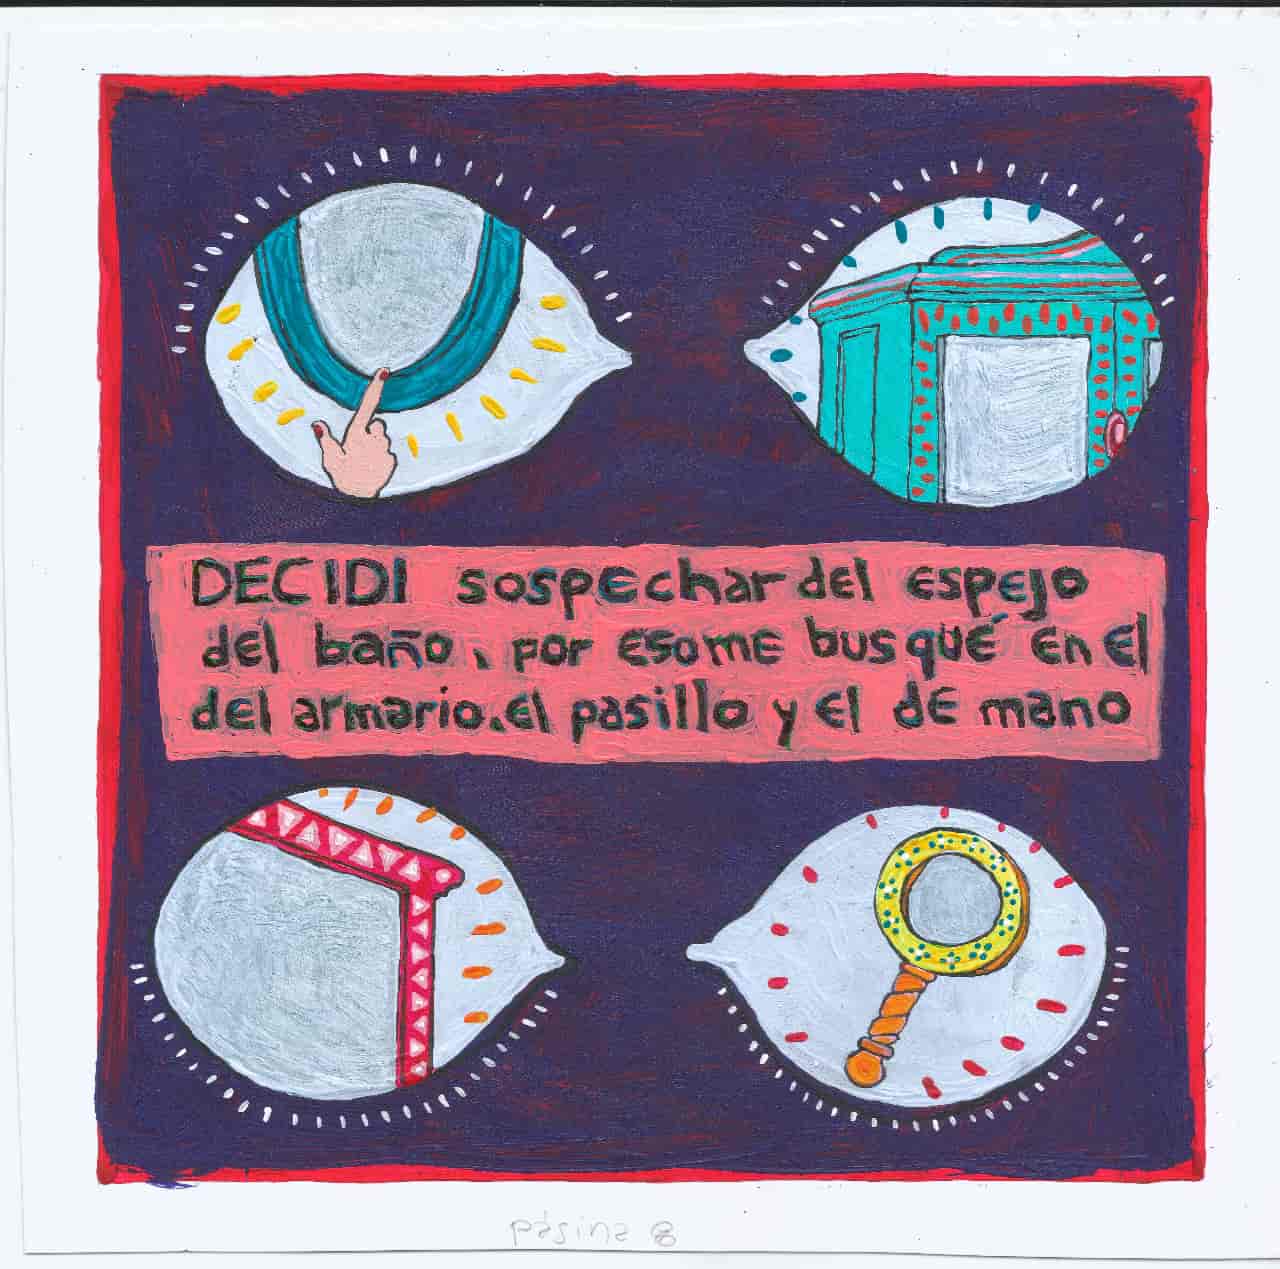 DECIDI sospechar del espejo
del baño, por eso me busqué en el
del armario, el pasillo y el de mano
página 8